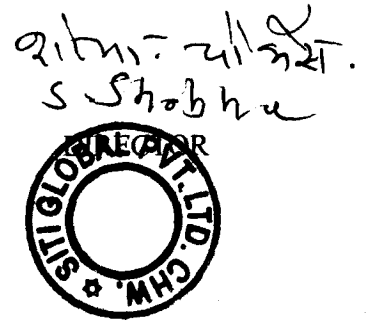 S Shobha
DIRECTOR
SITI GLOBAL PVT. LTD. CHW.